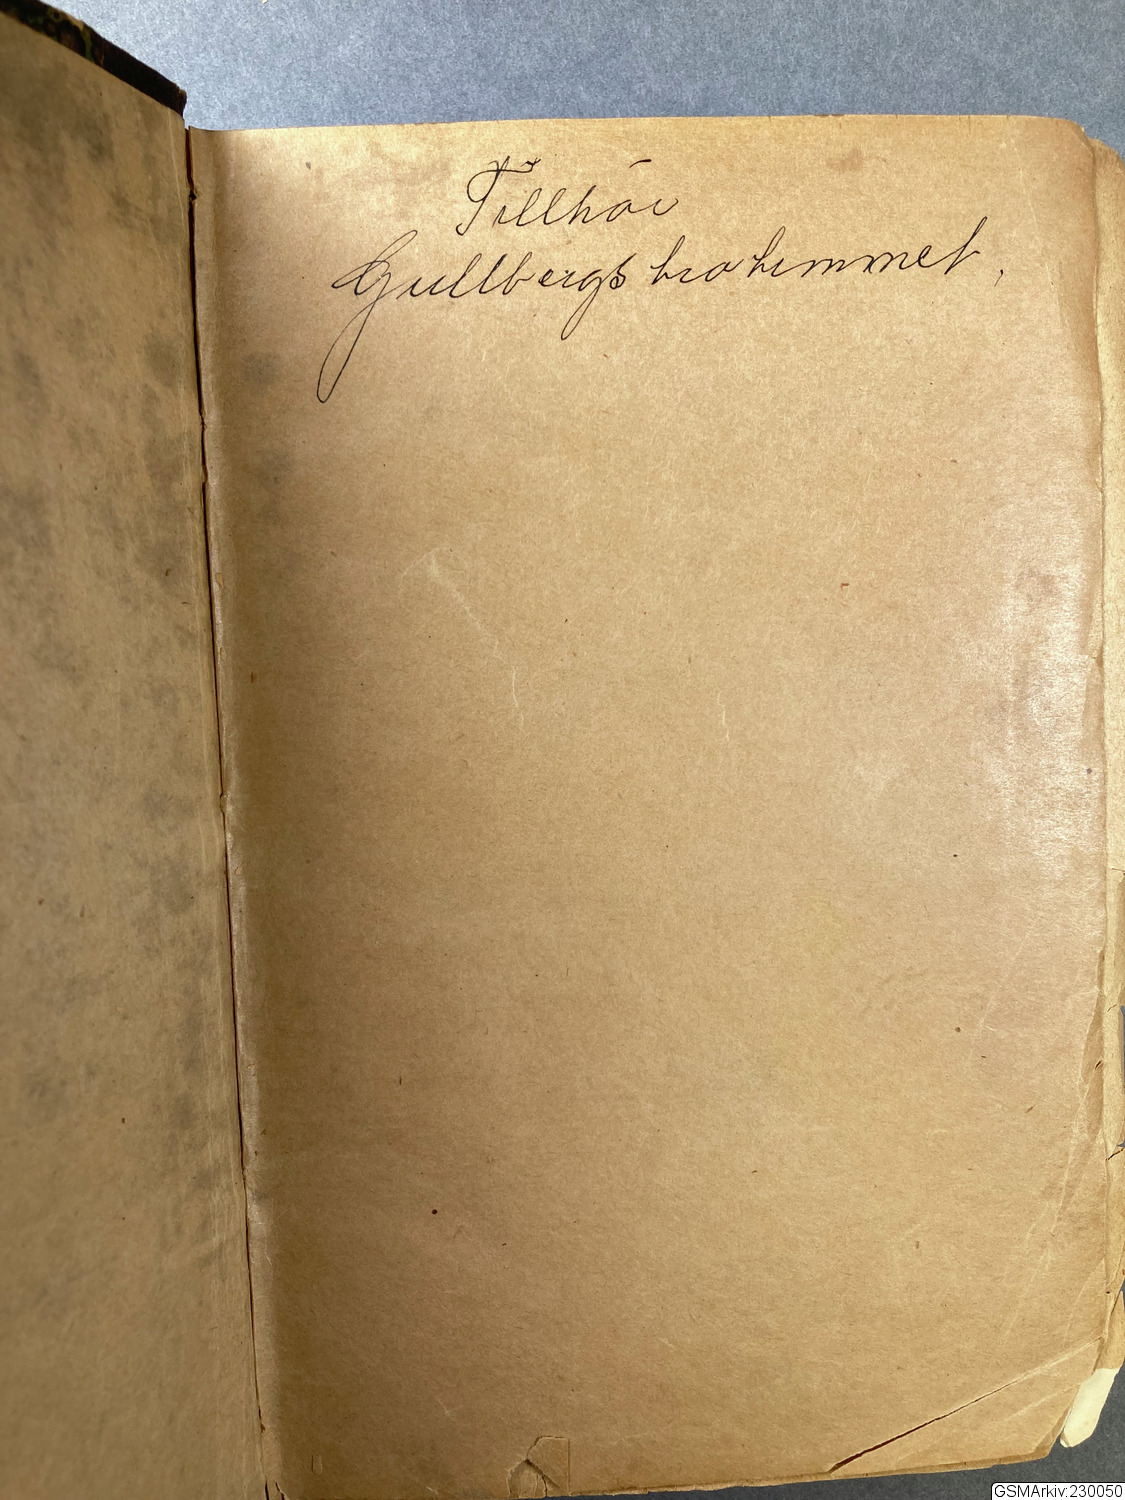 Tillhör
Gullbergsbrohemmet.
GSMArkiv:230050